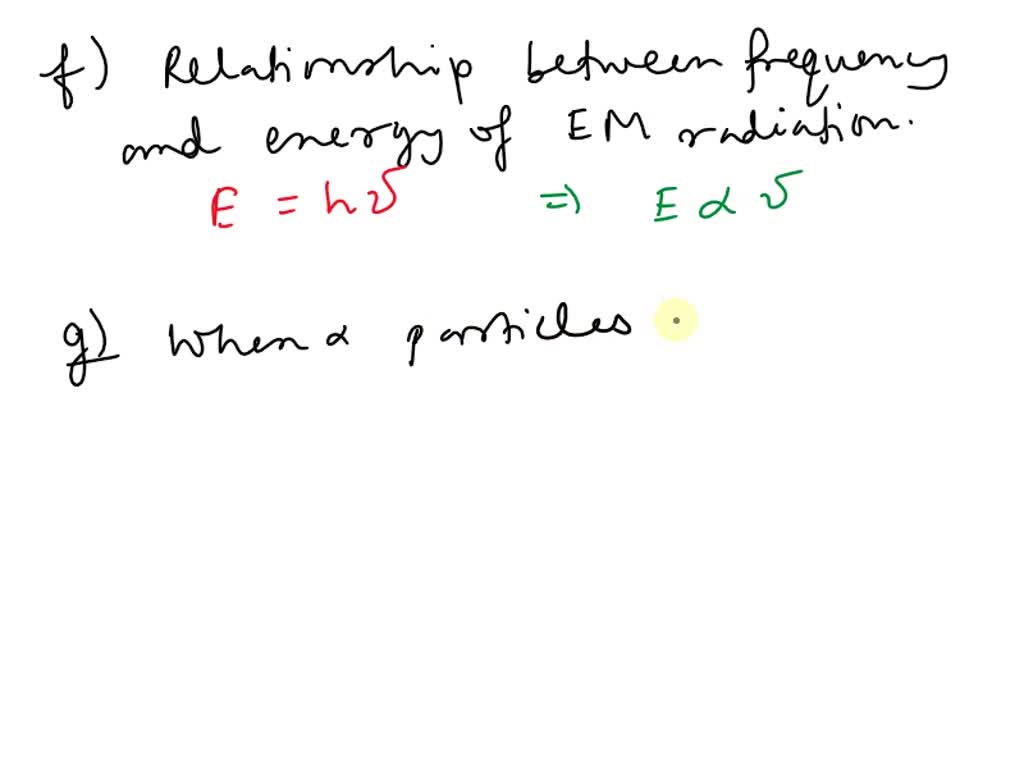 f) Relationship between frequency
and energy of EM radiation.
E = hν ⇒ E ∝ ν
g) When α particles